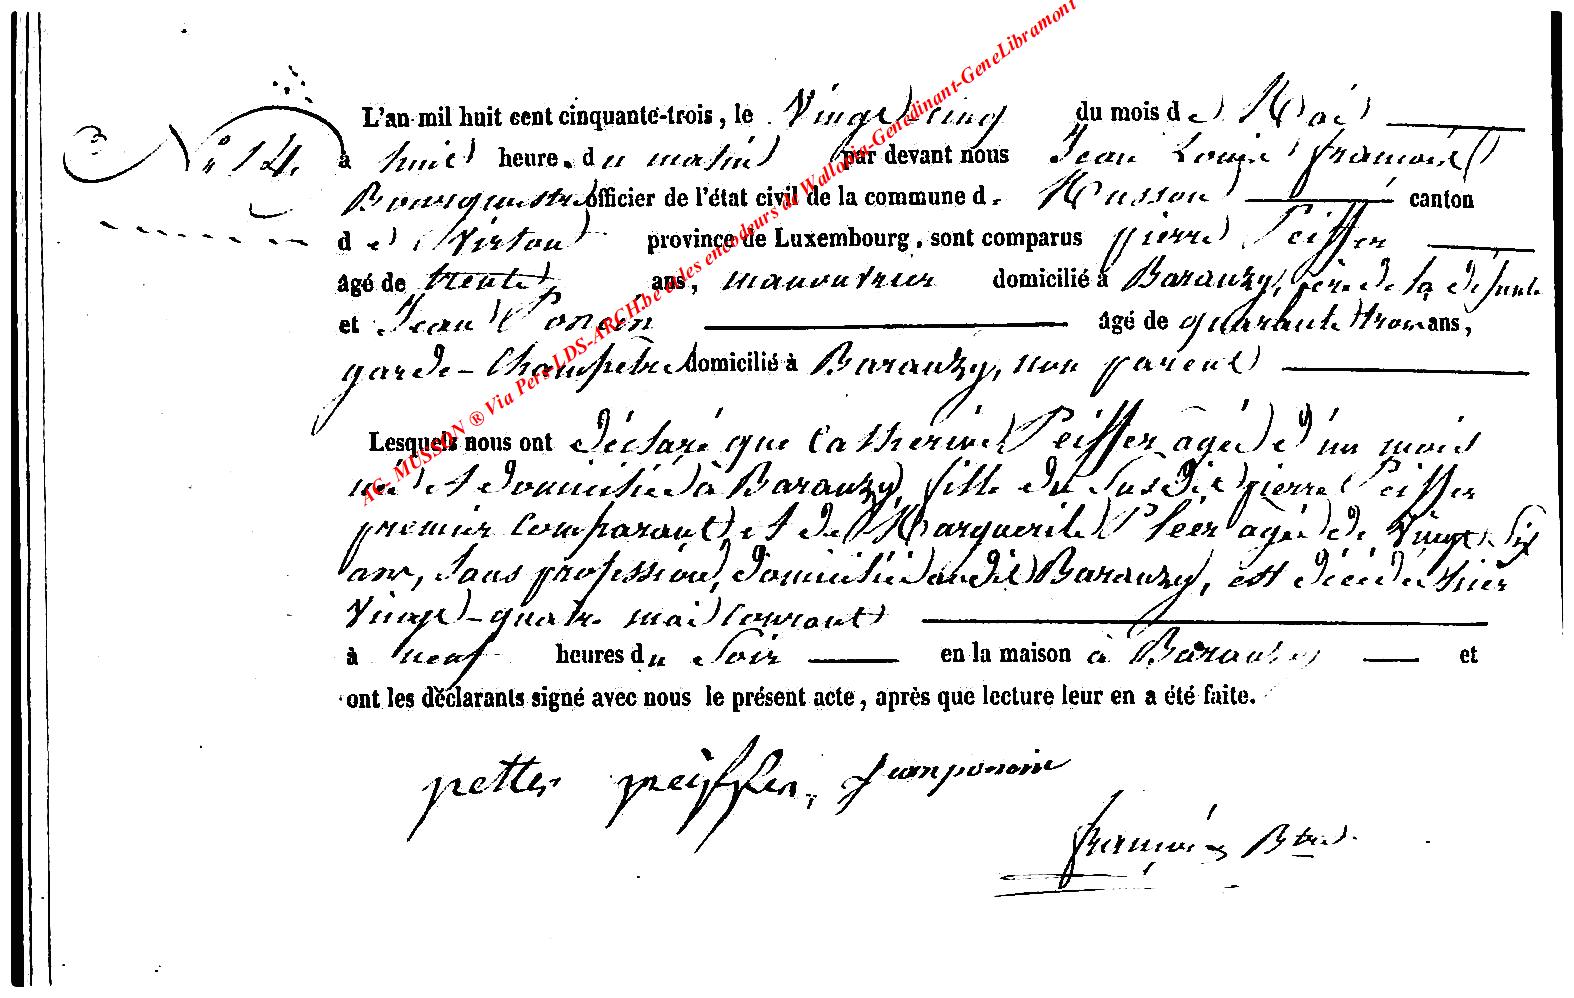 L'an mil huit cent cinquante-trois, le Vingt cinq du mois de Mai
N° 14. à huit heure. du matin par devant nous Jean Louis François
Bourgmestre officier de l'état civil de la commune d. Musson canton
de Virton province de Luxembourg, sont comparus pierre Peiffer
âgé de trente ans, manouvrier domicilié à Baranzy, père de la défunte
et Jean Poncin âgé de quarante trois ans,
garde-Champêtre domicilié à Baranzy, non parent
Lesquels nous ont déclaré que Catherine Peiffer agée d'un mois
née et domiciliée à Baranzy, fille du susdit pierre Peiffer
premier comparant et de Marguerite agée de Vingt six
ans, sans profession, domiciliée audit Baranzy, est décédée hier
Vingt-quatre mai courant
à neuf heures du soir en la maison à Baranzy et
ont les déclarants signé avec nous le présent acte, après que lecture leur en a été faite.
petter peiffer, 
françois Btre
AC- MUSSON ® Via Pers LDS-ARCH.be et les encodeurs de Wallonia-Genedinant-GeneLibramont